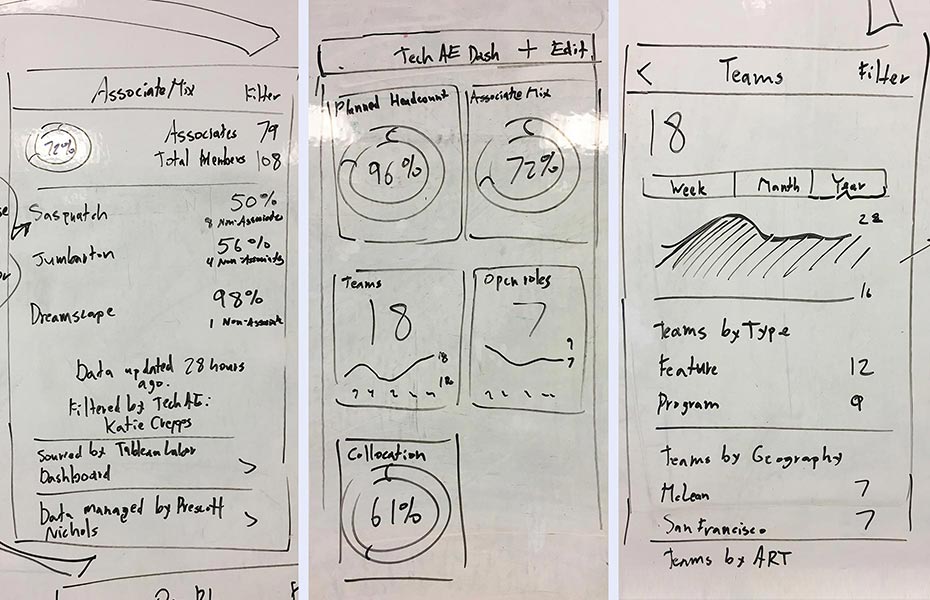 Associate Mix Filter
72%
Associates 79
Total Members 108
Sasquatch 50%
8 Non-Associates
Jumbarton 56%
4 Non-Associates
Dreamscape 98%
1 Non-Associate
Data updated 28 hours
ago.
Filtered by Tech AE:
Katie Crepps
Sourced by Tableau Labor
Dashboard >
Data managed by Prescott
Nichols >
Tech AE Dash + Edit
Planned Headcount
96%
Associate Mix
72%
Teams
18
18
Open roles
7
9
7
Collocation
61%
< Teams Filter
18
Week Month Year
28
16
Teams by Type
Feature 12
Program 9
Teams by Geography
McLean 7
San Francisco 7
Teams by ART